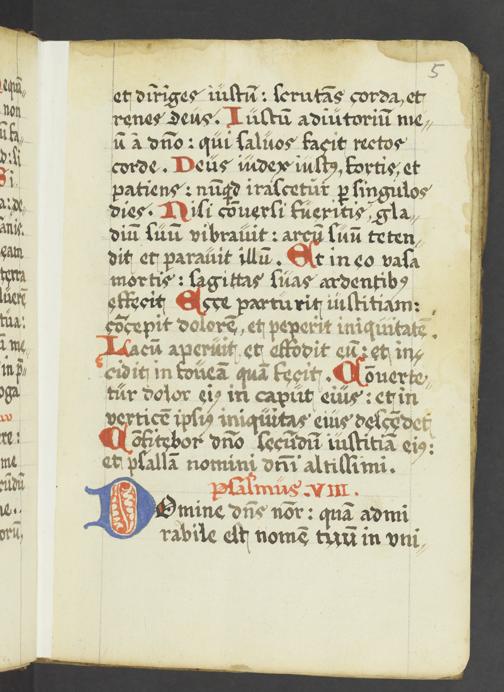 5
et diriges iustū: scrutās corda, et
renes deus. Iustū adiutoriū me„
ū a dño: qui saluos facit rectos
corde. Deus iudex iustꝰ, fortis, et
patiens: nūqd irascetur p singulos
dies. Nisi cōuersi fueritis, gla„
diū suū vibrauit: arcū suū teten„
dit et parauit illū. Et in eo vasa
mortis: sagittas suas ardentibꝰ
effecit Ecce parturit iustitiam:
cōcepit dolorē, et peperit iniquitatē.
Lacū aperuit et effodit eū: et in„
cidit in foueā quā fecit. Cōuerte„
tur dolor eiꝰ in caput eius: et in
verticē ipsiꝰ iniquitas eius descēdet
Cōfitebor dño secūdū iustitiā eiꝰ:
et psallā nomini dñi altissimi.
Psalmus. VIII.
Domine dñs nōr: quā admi
rabile est nomē tuū in vni„